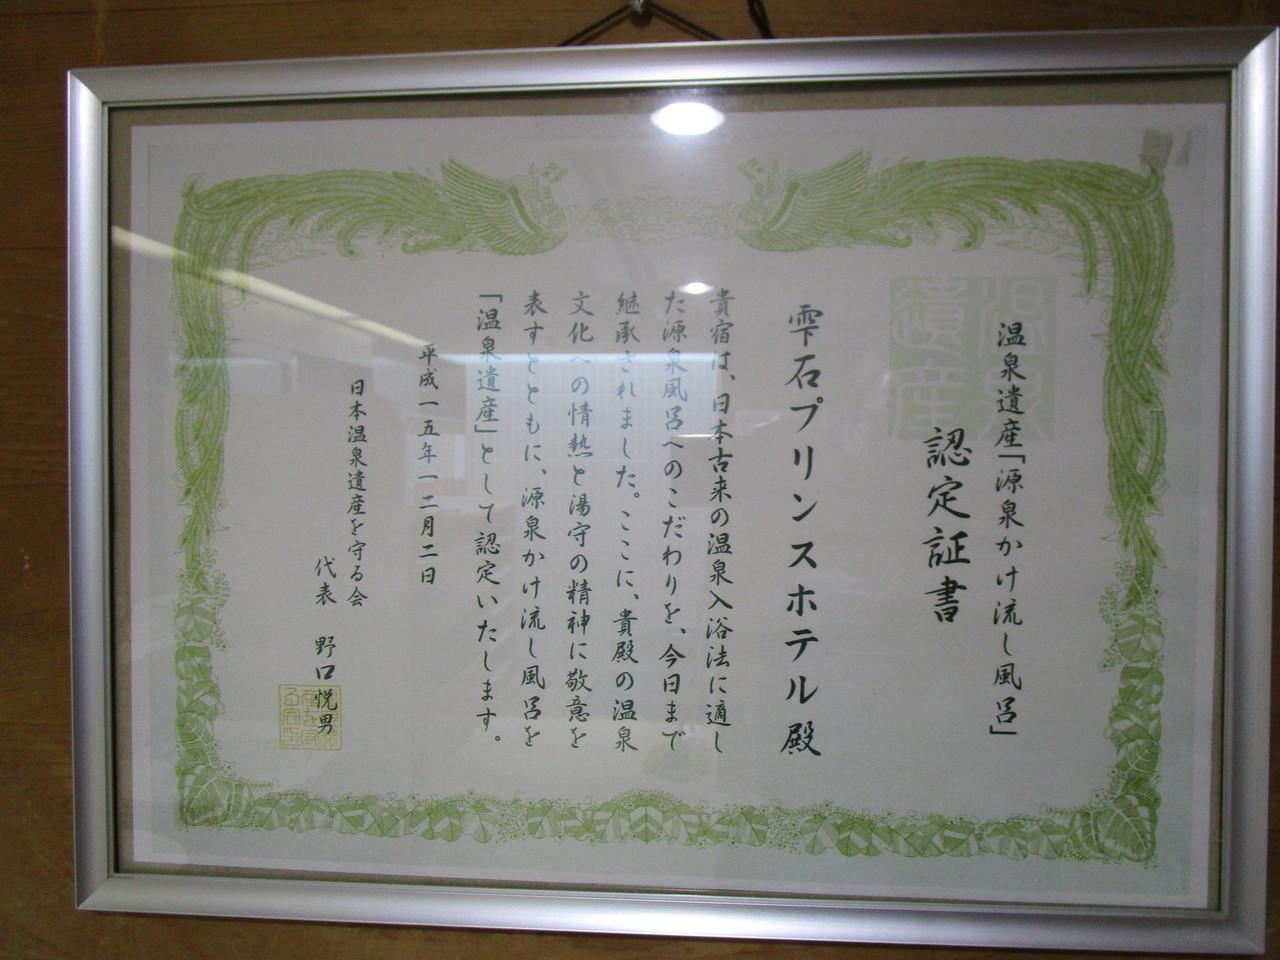 温泉遺産「源泉かけ流し風呂」
温泉
遺産
認定証書
雫石プリンスホテル 殿
貴宿は、日本古来の温泉入浴法に適し
た源泉風呂へのこだわりを、今日まで
継承されました。ここに、貴殿の温泉
文化への情熱と湯守の精神に敬意を
表すとともに、源泉かけ流し風呂を
「温泉遺産」として認定いたします。
平成一五年一二月二日
日本温泉遺産を守る会
代表 野口悦男